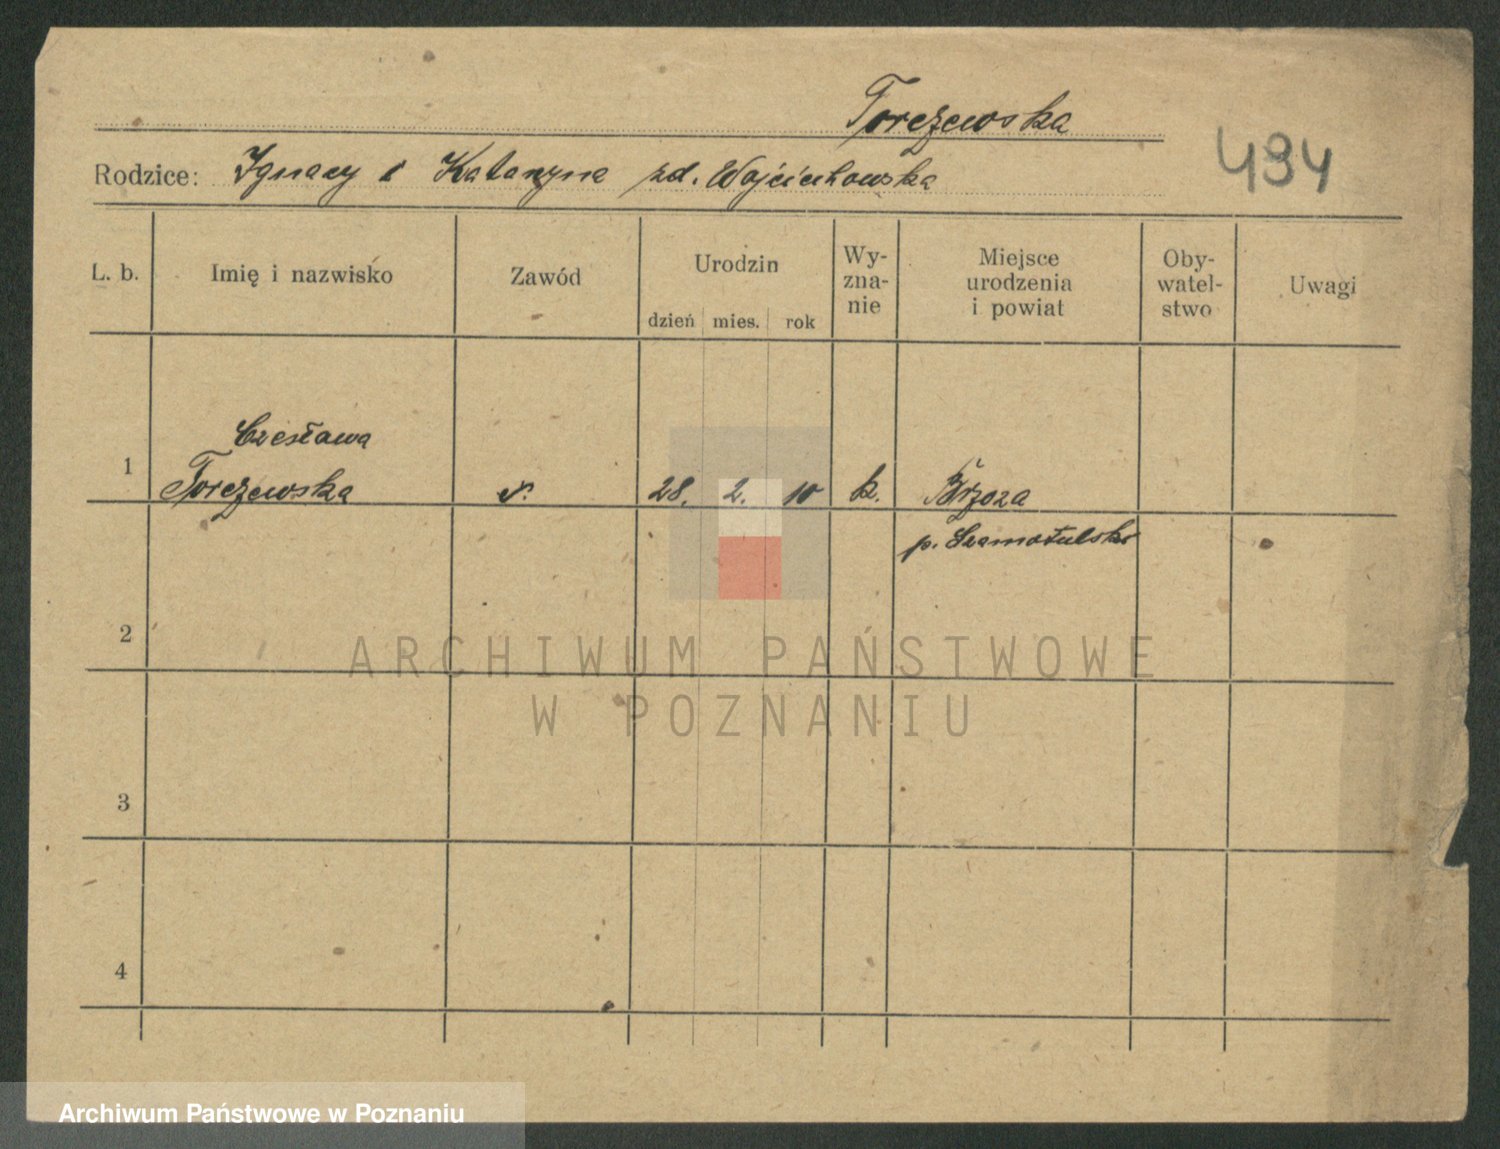 Torczewska
Rodzice: Ignacy i Katarzyna zd. Wojciechowska
494
L. b. Imię i nazwisko Zawód Urodzin dzień mies. rok Wy-zna-nie Miejsce urodzenia i powiat Oby-watel-stwo Uwagi
Czesława
1 Torczewska 28. 2. 10 k. Brzoza
p. Szamotulski
2
ARCHIWUM PAŃSTWOWE
W POZNANIU
3
4
Archiwum Państwowe w Poznaniu